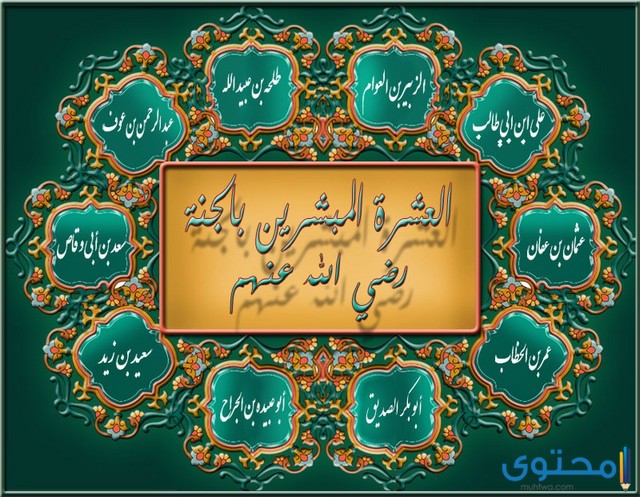 طلحه بن عبيد الله
الزبير بن العوام
علي ابن ابي طالب
عبدالرحمن بن عوف
العشرة المبشرين بالجنة
رضي الله عنهم
عثمان بن عفان
سعد بن أبي وقاص
عمر بن الخطاب
سعيد بن زيد
أبو بكر الصديق
أبو عبيده بن الجراح
محتوى
muhtwa.com